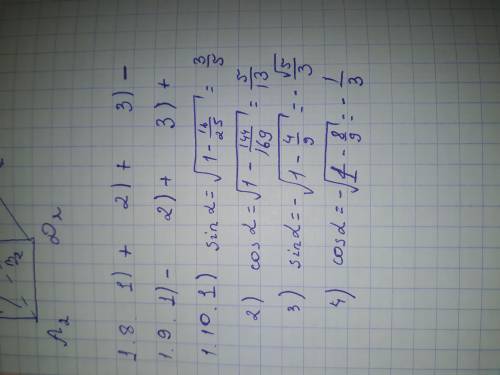 A₂ D₂
1.8. 1) + 2) + 3) -
1.9. 1) - 2) + 3) +
1.10. 1) sin α = √(1 - 16/25) = 3/5
2) cos α = √(1 - 144/169) = 5/13
3) sin α = -√(1 - 4/9) = -√5/3
4) cos α = -√(1 - 8/9) = -1/3